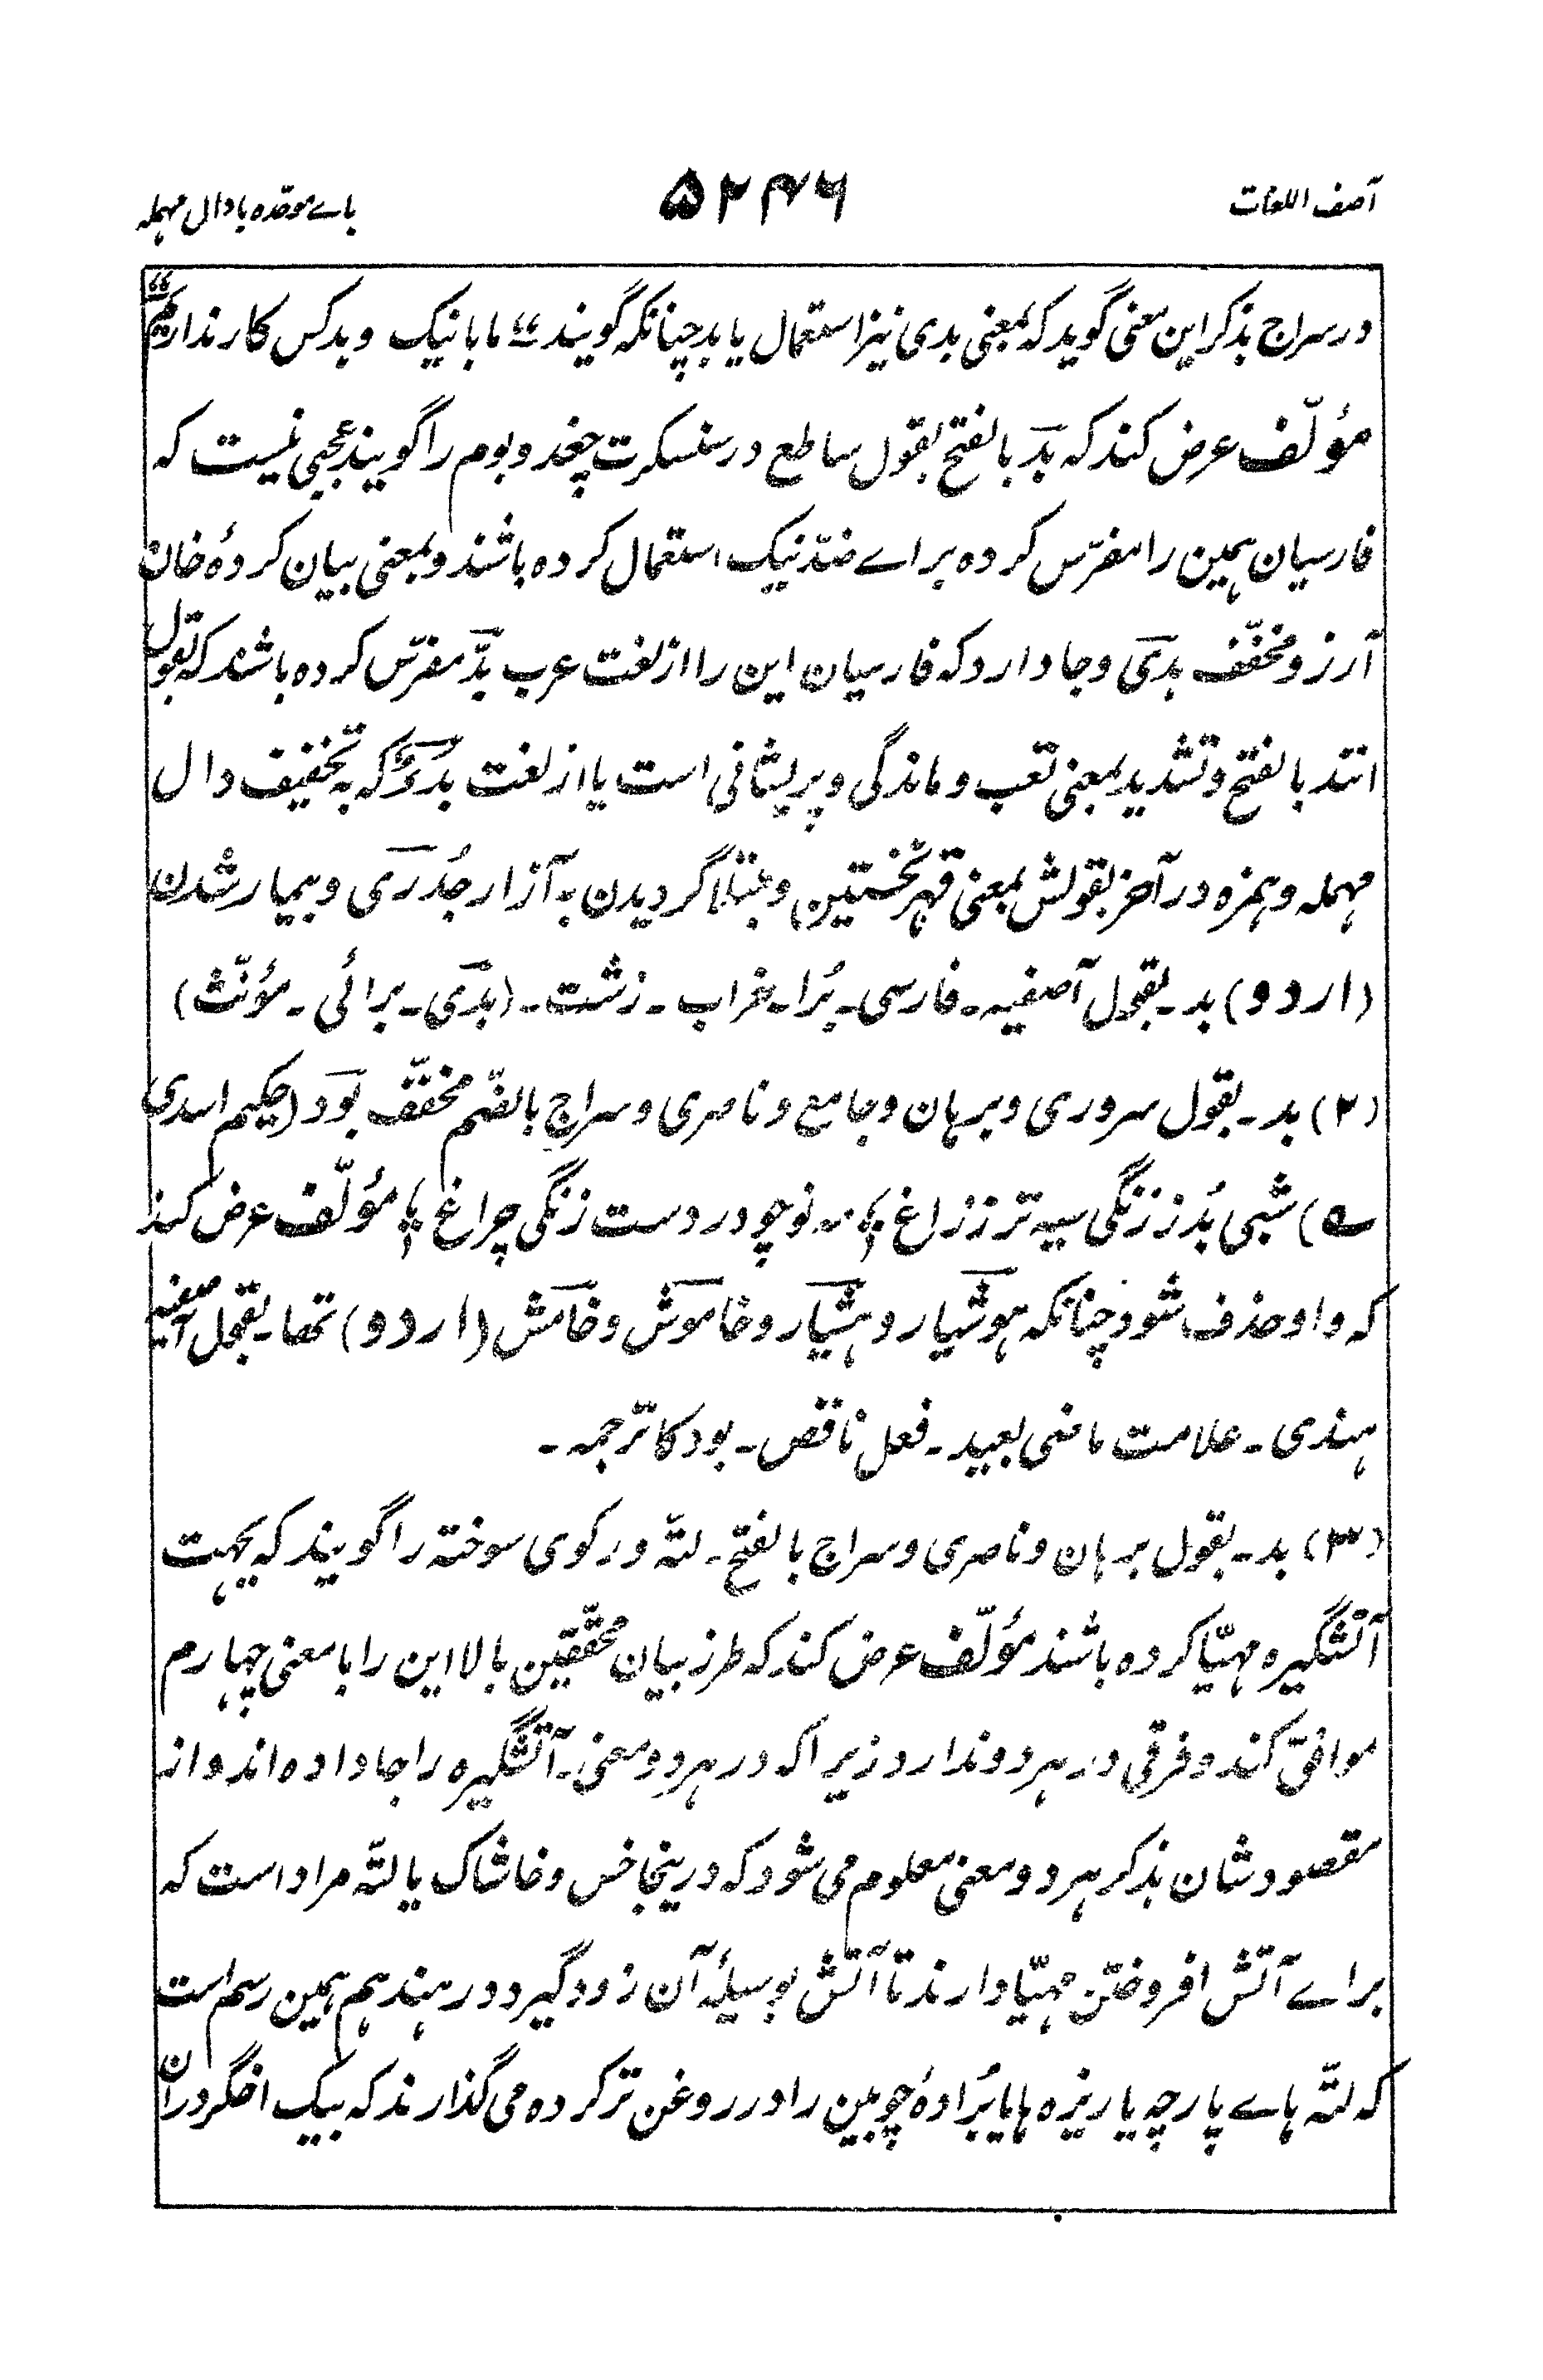 آصف اللغات
۵۲۴۶
باے موحّدہ با دال مہملہ
در سراج بذکر این معنی گوید کہ بمعنی بدی نیز استعمال یابد چنانکہ گویند ؎ ما با نیک و بد کس کار نداریم ؎
مؤلّف عرض کند کہ بد بالفتح بقول ساطع در سنسکرت چغد و بوم را گویند عجبی نیست کہ
فارسیان ہمین را مفرّس کردہ براے ضدّ نیک استعمال کردہ باشند و بمعنی بیان کردۂ خان
آرزو مخفّف بدی و جا دارد کہ فارسیان این را از لغت عرب بدّ مفرّس کردہ باشند کہ بقول
انند بالفتح و تشدید بمعنی تعب و ماندگی و پریشانی است یا از لغت بدوٴ کہ بہ تخفیف دال
مہملہ و ہمزہ در آخر بقولش بمعنی قہر نخستین و مبتلا گردیدن بہ آزار جُدری و بیمار شدن
(اردو) بد ۔ بقول آصفیہ ۔ فارسی ۔ بُرا ۔ خراب ۔ زشت ۔ (بدی ۔ برائی ۔ مؤنّث)
(۲) بد ۔ بقول سروری و برہان و جامع و ناصری و سراج بالضّم مخفّف بود (حکیم اسدی
؎) شبی بُد ز زنگی سیہ تر ز زاغ ؛ مہ نو چو در دست زنگی چراغ ؛ مؤلّف عرض کند
کہ واو حذف شود چنانکہ ہوشیار و ہشیار و خاموش و خامش (اردو) تھا ۔ بقول آصفیہ
ہندی ۔ علامت ماضی بعید ۔ فعل ناقص ۔ بود کا ترجمہ ۔
(۳) بد ۔ بقول برہان و ناصری و سراج بالفتح ۔ لتّہ و رکوی سوختہ را گویند کہ بجہت
آتشگیرہ مہیّا کردہ باشند مؤلّف عرض کند کہ طرز بیان محققّین بالا این را با معنی چہارم
موافق کند و فرقی در ہر دو ندارد زیرا کہ در ہر دو معنی ۔ آتشگیرہ را جا دادہ اند و از
مقصود شان بذکر ہر دو معنی معلوم می شود کہ درینجا خس و خاشاک یا لتّہ مراد است کہ
براے آتش افروختن مہیّا دارند تا آتش بوسیلۂ آن زود گیرد و در ہند ہم ہمین رسم است
کہ لتّہ ہاے پارچہ یا ریزہ ہا یا بُرادۂ چوبین را در روغن تر کردہ می گذارند کہ بیک اخگر در آن